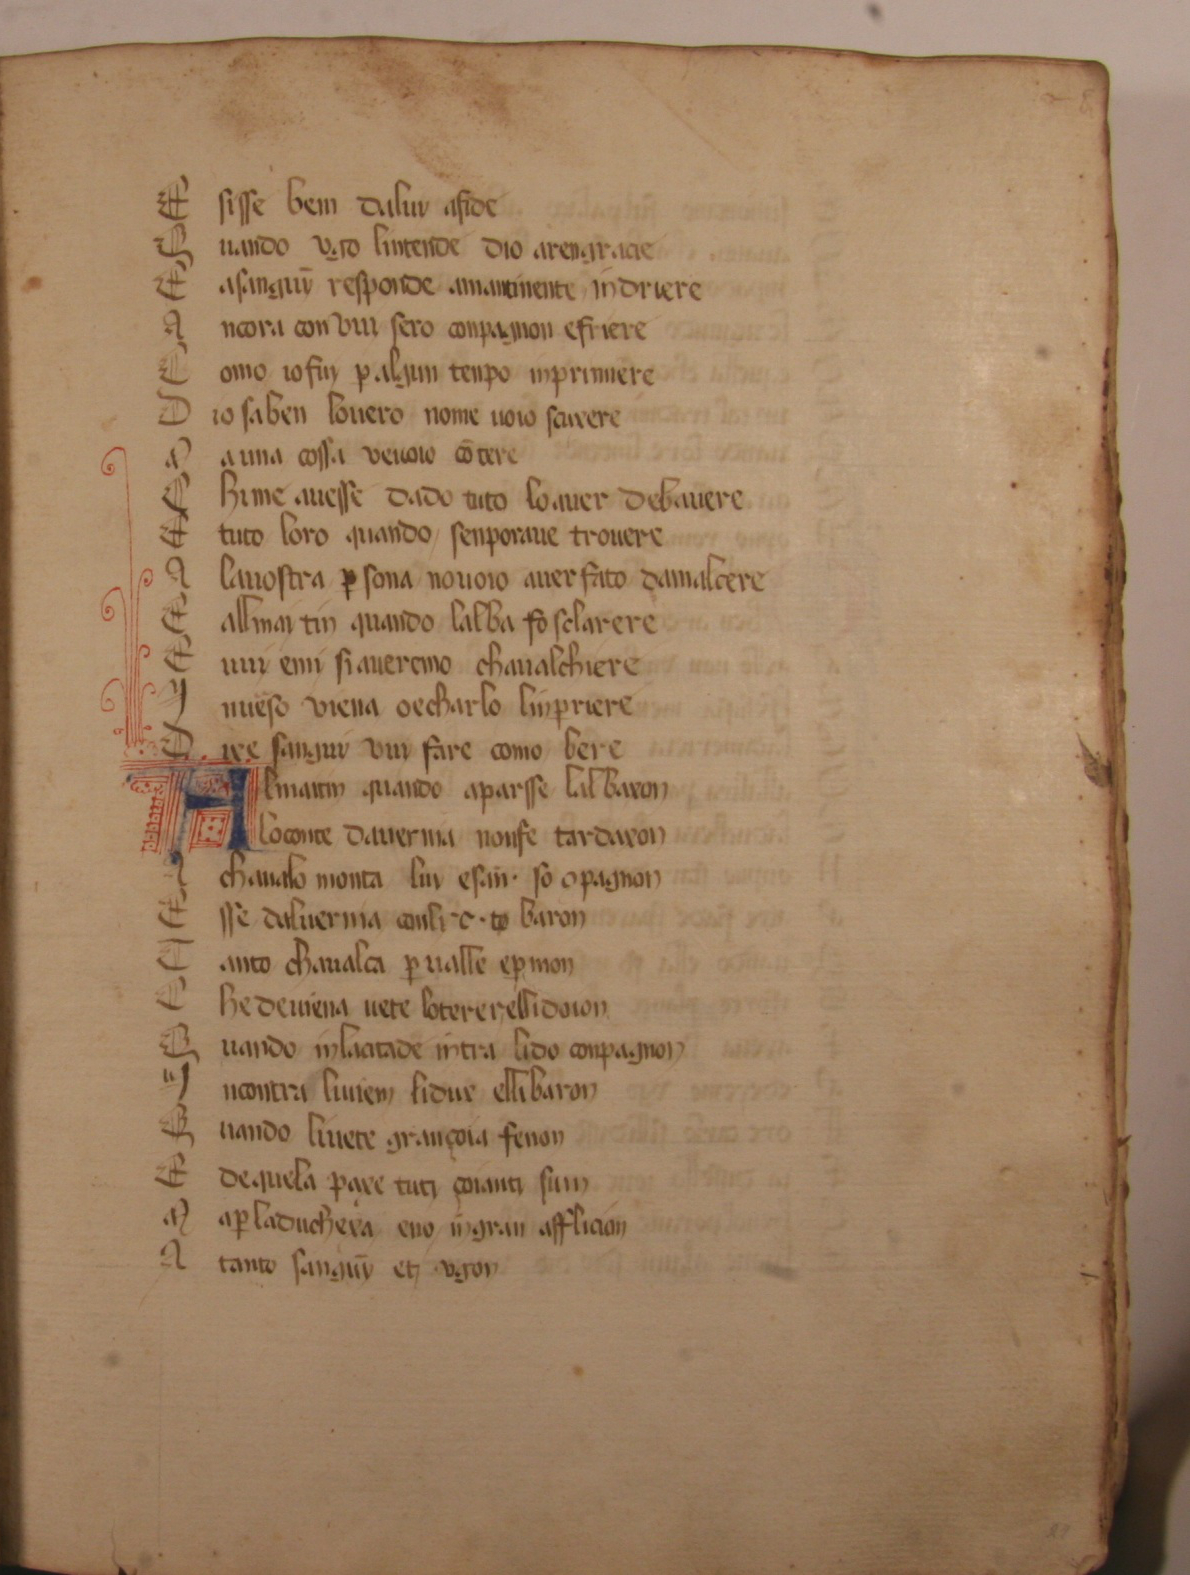 E sisse bem daluy afide
Quando v͛go lintende dio arengracie
E asanguȳ responde amantinente indriere
A ncora con vui sero conpagnon efriere
C omo io fuy ꝑ algun tenpo inprimiere
D io saben lo uero nome uoio scaxere
M a una cossa ve uoio cōtere
C hi me auesse dado tuto lo auer de bauere
E tuto loro quando senporaue trouere
A la uostra ꝑsona no uoio auer fato damalcere
E al lmaytin quando lalba fo sclarere
E uui emi si aueremo chaualchiere
I nuēso viena oe charlo linꝑriere
D ixe sanguy vuy fare como bere
A lmaitin quando aparsse lal baxon
A lo conte dauernia nonse tardaxon
A chaualo monta luy esan· so ɔpagnon
E sse daluernia conli·c·to baron
T anto chaualca ꝑ ualle eꝑ mon
C he deuiena uete lo terer elli doion
Quando in lacitade intra li do conpagnon
I ncontra li uiem lidux elli baron
Quando li uete grançoia fenon
E dequela paxe tuti çoianti sum
M a ꝑ laduchexa eno in gran afflicion
A tanto sanguȳ et v͛gon